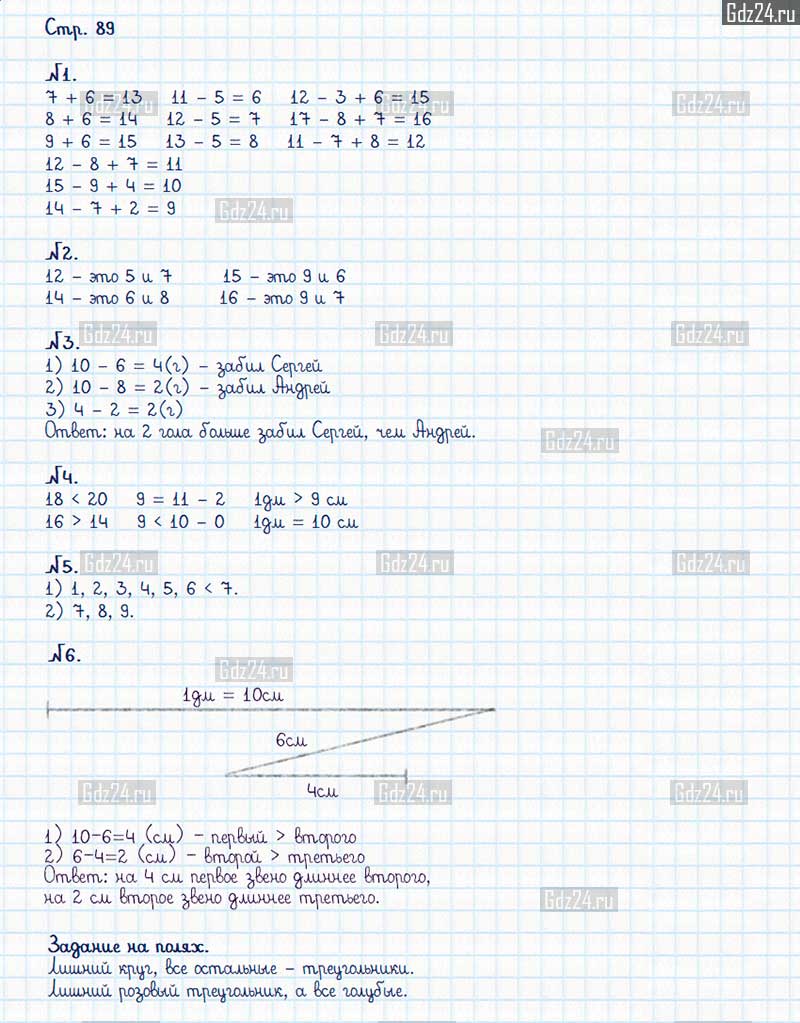 Gdz24.ru
Стр. 89
№1.
7 + 6 = 13 11 - 5 = 6 12 - 3 + 6 = 15
8 + 6 = 14 12 - 5 = 7 17 - 8 + 7 = 16
9 + 6 = 15 13 - 5 = 8 11 - 7 + 8 = 12
12 - 8 + 7 = 11
15 - 9 + 4 = 10
14 - 7 + 2 = 9
№2.
12 - это 5 и 7 15 - это 9 и 6
14 - это 6 и 8 16 - это 9 и 7
№3.
1) 10 - 6 = 4(г) - забил Сергей
2) 10 - 8 = 2(г) - забил Андрей
3) 4 - 2 = 2(г)
Ответ: на 2 гола больше забил Сергей, чем Андрей.
№4.
18 < 20 9 = 11 - 2 1дм > 9 см
16 > 14 9 < 10 - 0 1дм = 10 см
№5.
1) 1, 2, 3, 4, 5, 6 < 7.
2) 7, 8, 9.
№6.
1дм = 10см
6см
4см
1) 10-6=4 (см) - первый > второго
2) 6-4=2 (см) - второй > третьего
Ответ: на 4 см первое звено длиннее второго,
на 2 см второе звено длиннее третьего.
Задание на полях.
Лишний круг, все остальные - треугольники.
Лишний розовый треугольник, а все голубые.